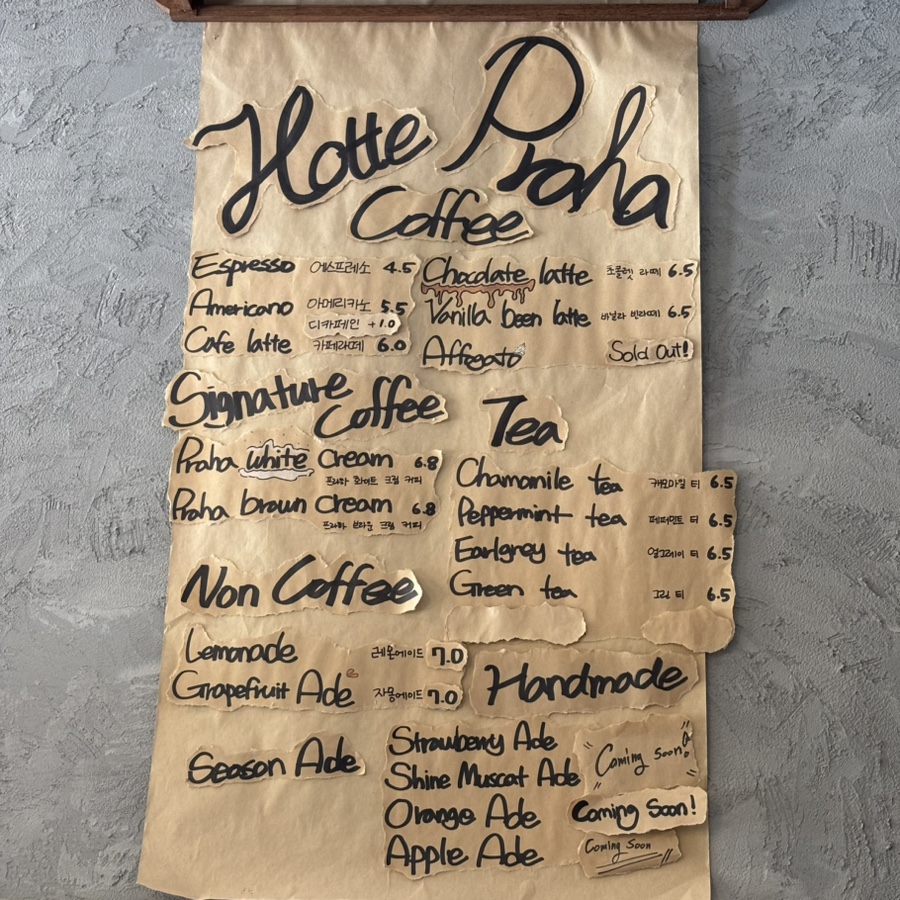 Hotte Praha
Coffee
Espresso 에스프레소 4.5
Americano 아메리카노 5.5
디카페인 +1.0
Cafe latte 카페라떼 6.0
Chocolate latte 초콜렛 라떼 6.5
Vanilla been latte 바닐라 빈라떼 6.5
Affogato Sold Out!
Signature Coffee
Praha white Cream 6.8
프라하 화이트 크림 커피
Praha brown Cream 6.8
프라하 브라운 크림 커피
Tea
Chamomile tea 캐모마일 티 6.5
Peppermint tea 페퍼민트 티 6.5
Earlgrey tea 얼그레이 티 6.5
Green tea 그린 티 6.5
Non Coffee
Lemonade 레몬에이드 7.0
Grapefruit Ade 자몽에이드 7.0
Handmade
Season Ade
Strawberry Ade
Shine Muscat Ade
"Coming soon!"
Orange Ade Coming Soon!
Apple Ade Coming Soon